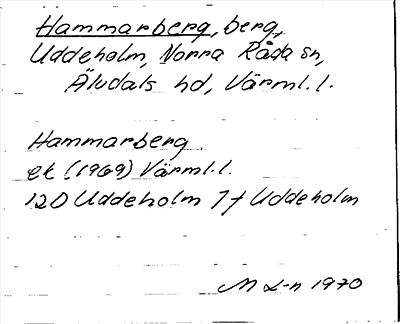 Hammarberg, berg,
Uddeholm, Norra Råda sn,
Älvdals hd, Värml.l.
Hammarberg
ek (1969) Värml.l.
12D Uddeholm 7f Uddeholm
M L-n 1970